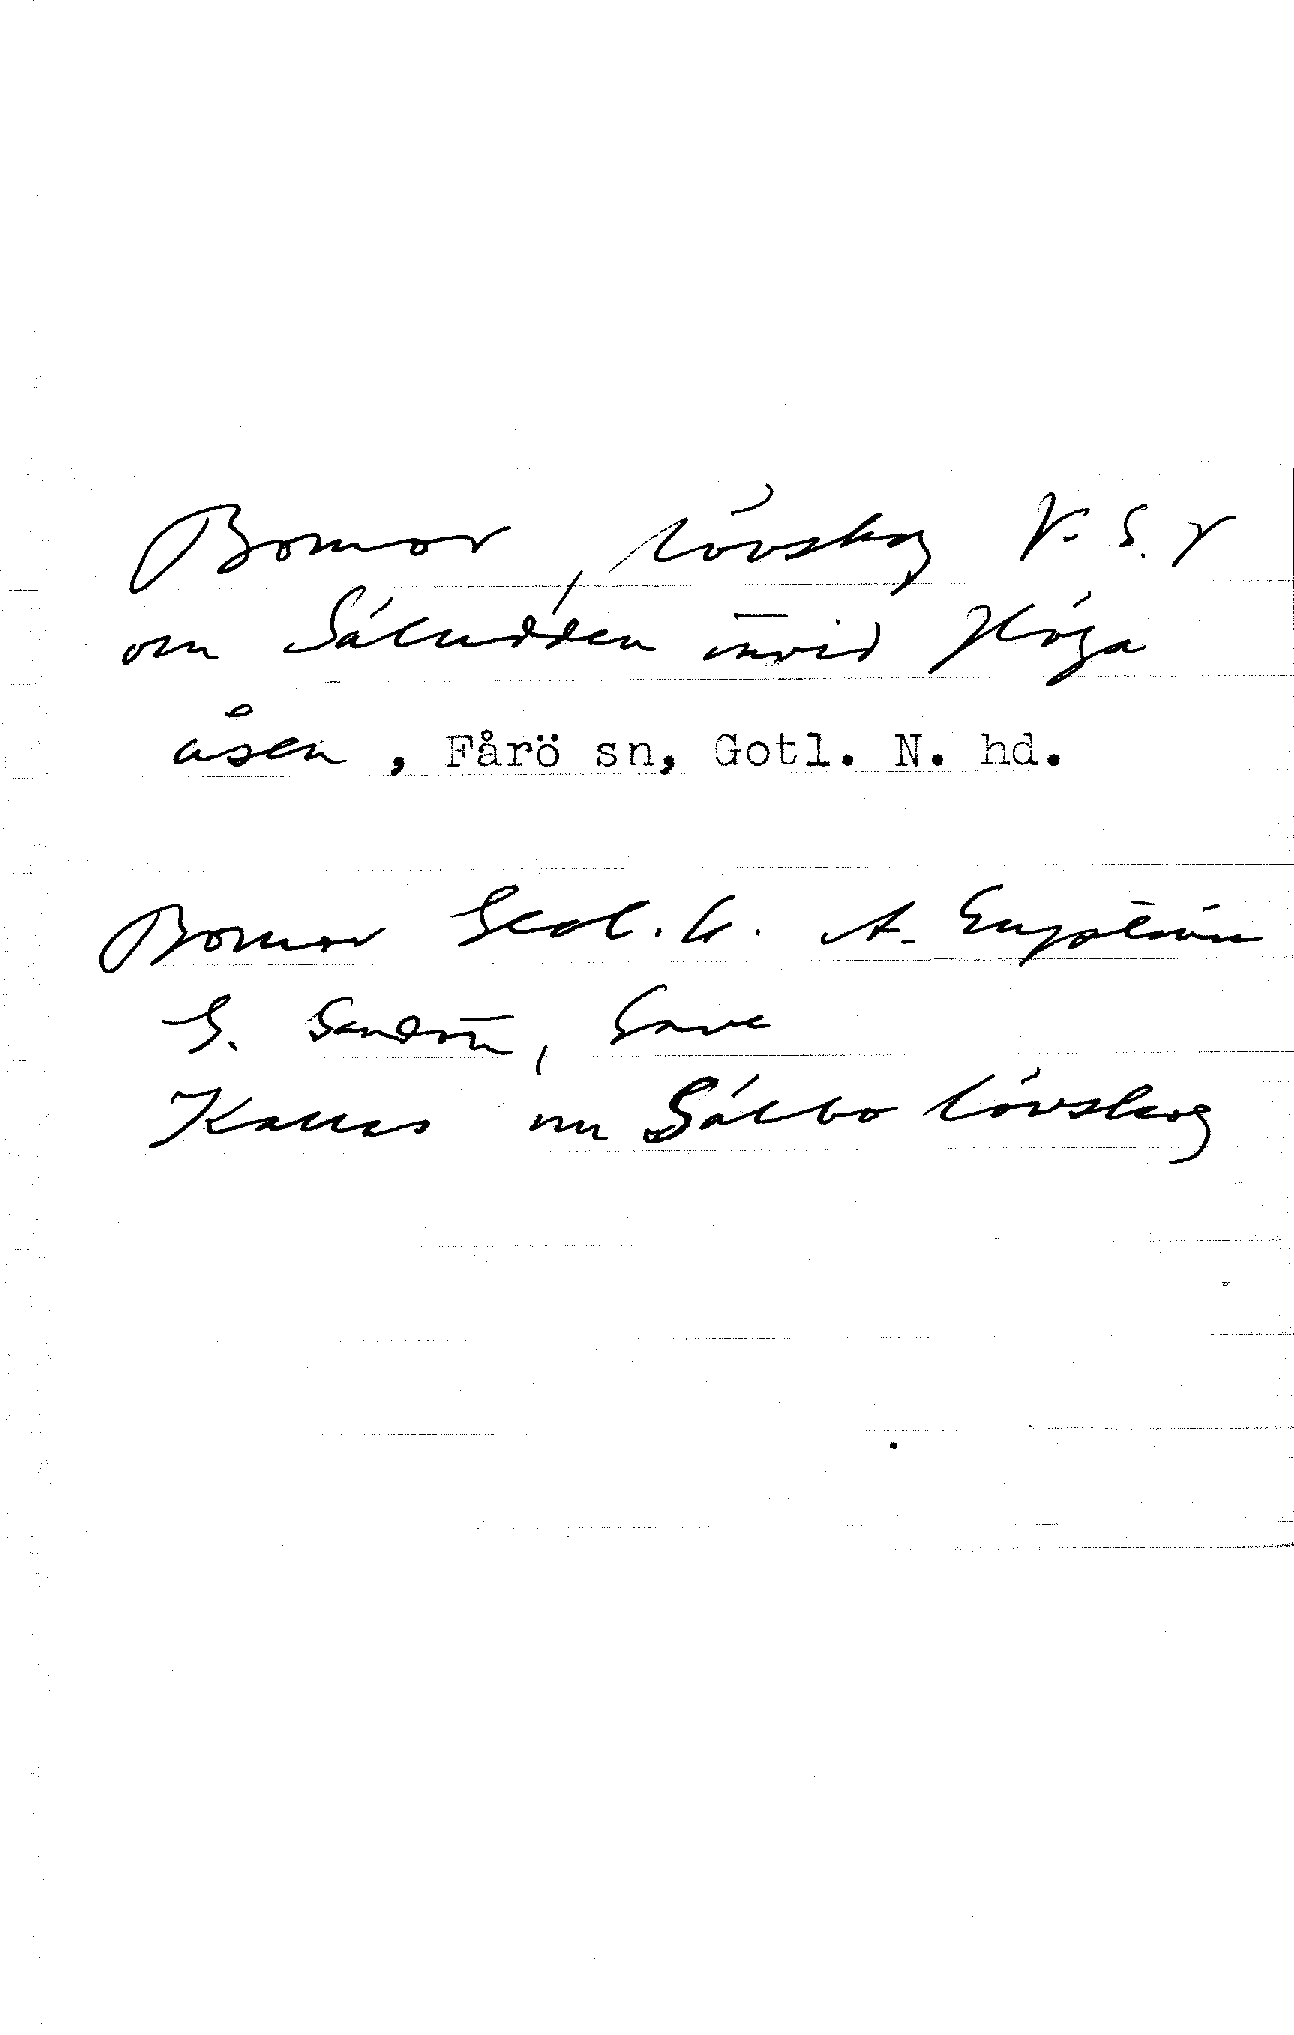 Bomor, lövskog V. S. V
om Sáludden invid Höga
åsen, Fårö sn, Gotl. N. hd.
Bomor Geol. k. A. Engström
G. Sandön, Gava
Kallas nu Sálbo lövskog